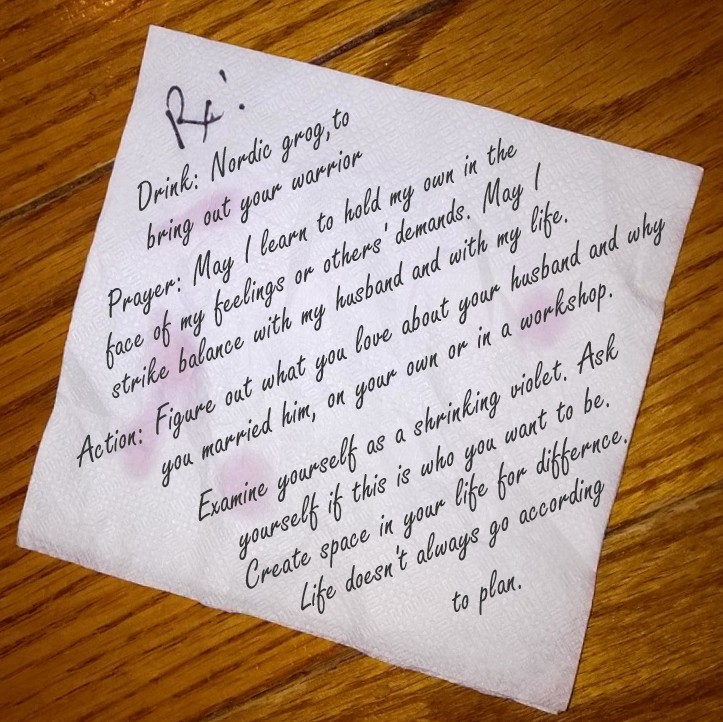 Rx:
Drink: Nordic grog, to
bring out your warrior
Prayer: May I learn to hold my own in the
face of my feelings or others' demands. May I
strike balance with my husband and with my life.
Action: Figure out what you love about your husband and why
you married him, on your own or in a workshop.
Examine yourself as a shrinking violet. Ask
yourself if this is who you want to be.
Create space in your life for differnce.
Life doesn't always go according
to plan.